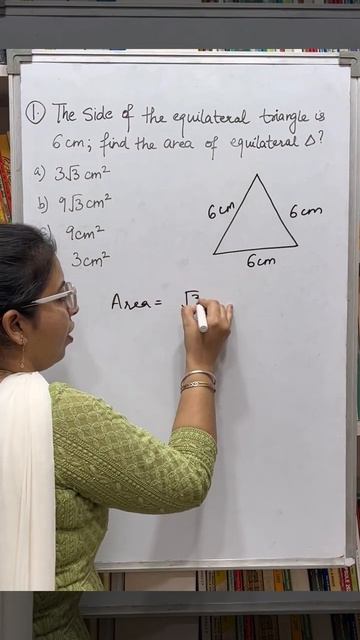 1. The side of the equilateral triangle is
6cm; find the area of equilateral Δ?
a) 3√3 cm²
b) 9√3 cm²
c) 9cm²
3cm²
6cm
6cm
6cm
Area = √3